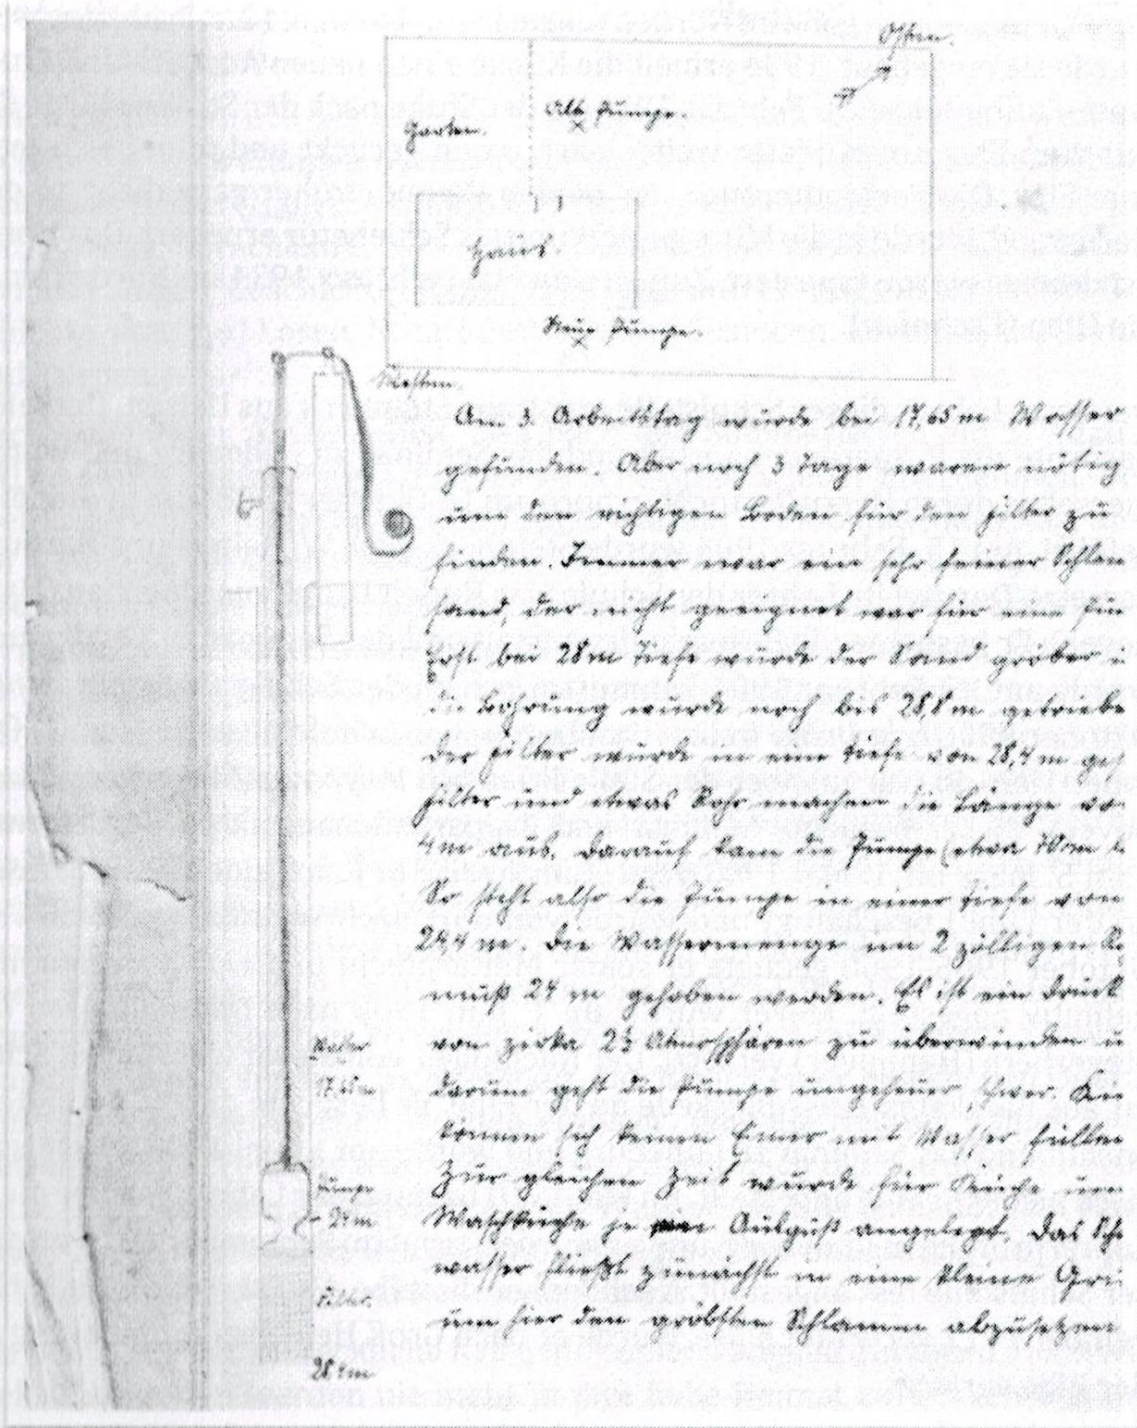 Osten.
Alte Pumpe.
Garten.
Haus.
Neue Pumpe.
Westen.
Am 3. Arbeitstag wurde bei 17,65 m Wasser
gefunden. Aber noch 3 Tage waren nötig
um den richtigen Boden für den Filter zu
finden. Immer war ein sehr feiner Schlam
sand, der nicht geeignet war für eine Pum
Erst bei 28 m Tiefe wurde der Sand gröber u
die Bohrung wurde noch bis 28,8 m getriebe
der Filter wurde in eine Tiefe von 28,4 m ges
Filter und etwas Rohr machen die Länge vo
4 m aus. Darauf kam die Pumpe (etwa
So steht also die Pumpe in einer Tiefe von
24,4 m. Die Wassermenge im 2 zölligen Ro
muß 24 m gehoben werden. Es ist ein Druck
von zirka 2½ Atmosphären zu überwinden u
darum geht die Pumpe ungeheuer schwer. Kin
können sich keinen Eimer mit Wasser füllen
Zur gleichen Zeit wurde für Küche und
Waschküche je ein Ausguß angelegt. Das Sch
wasser fließt zunächst in eine kleine Gru
um hier den gröbsten Schlamm abzusetzen
Wasser
17,65 m
Pumpe
24 m
Filter.
28,4 m